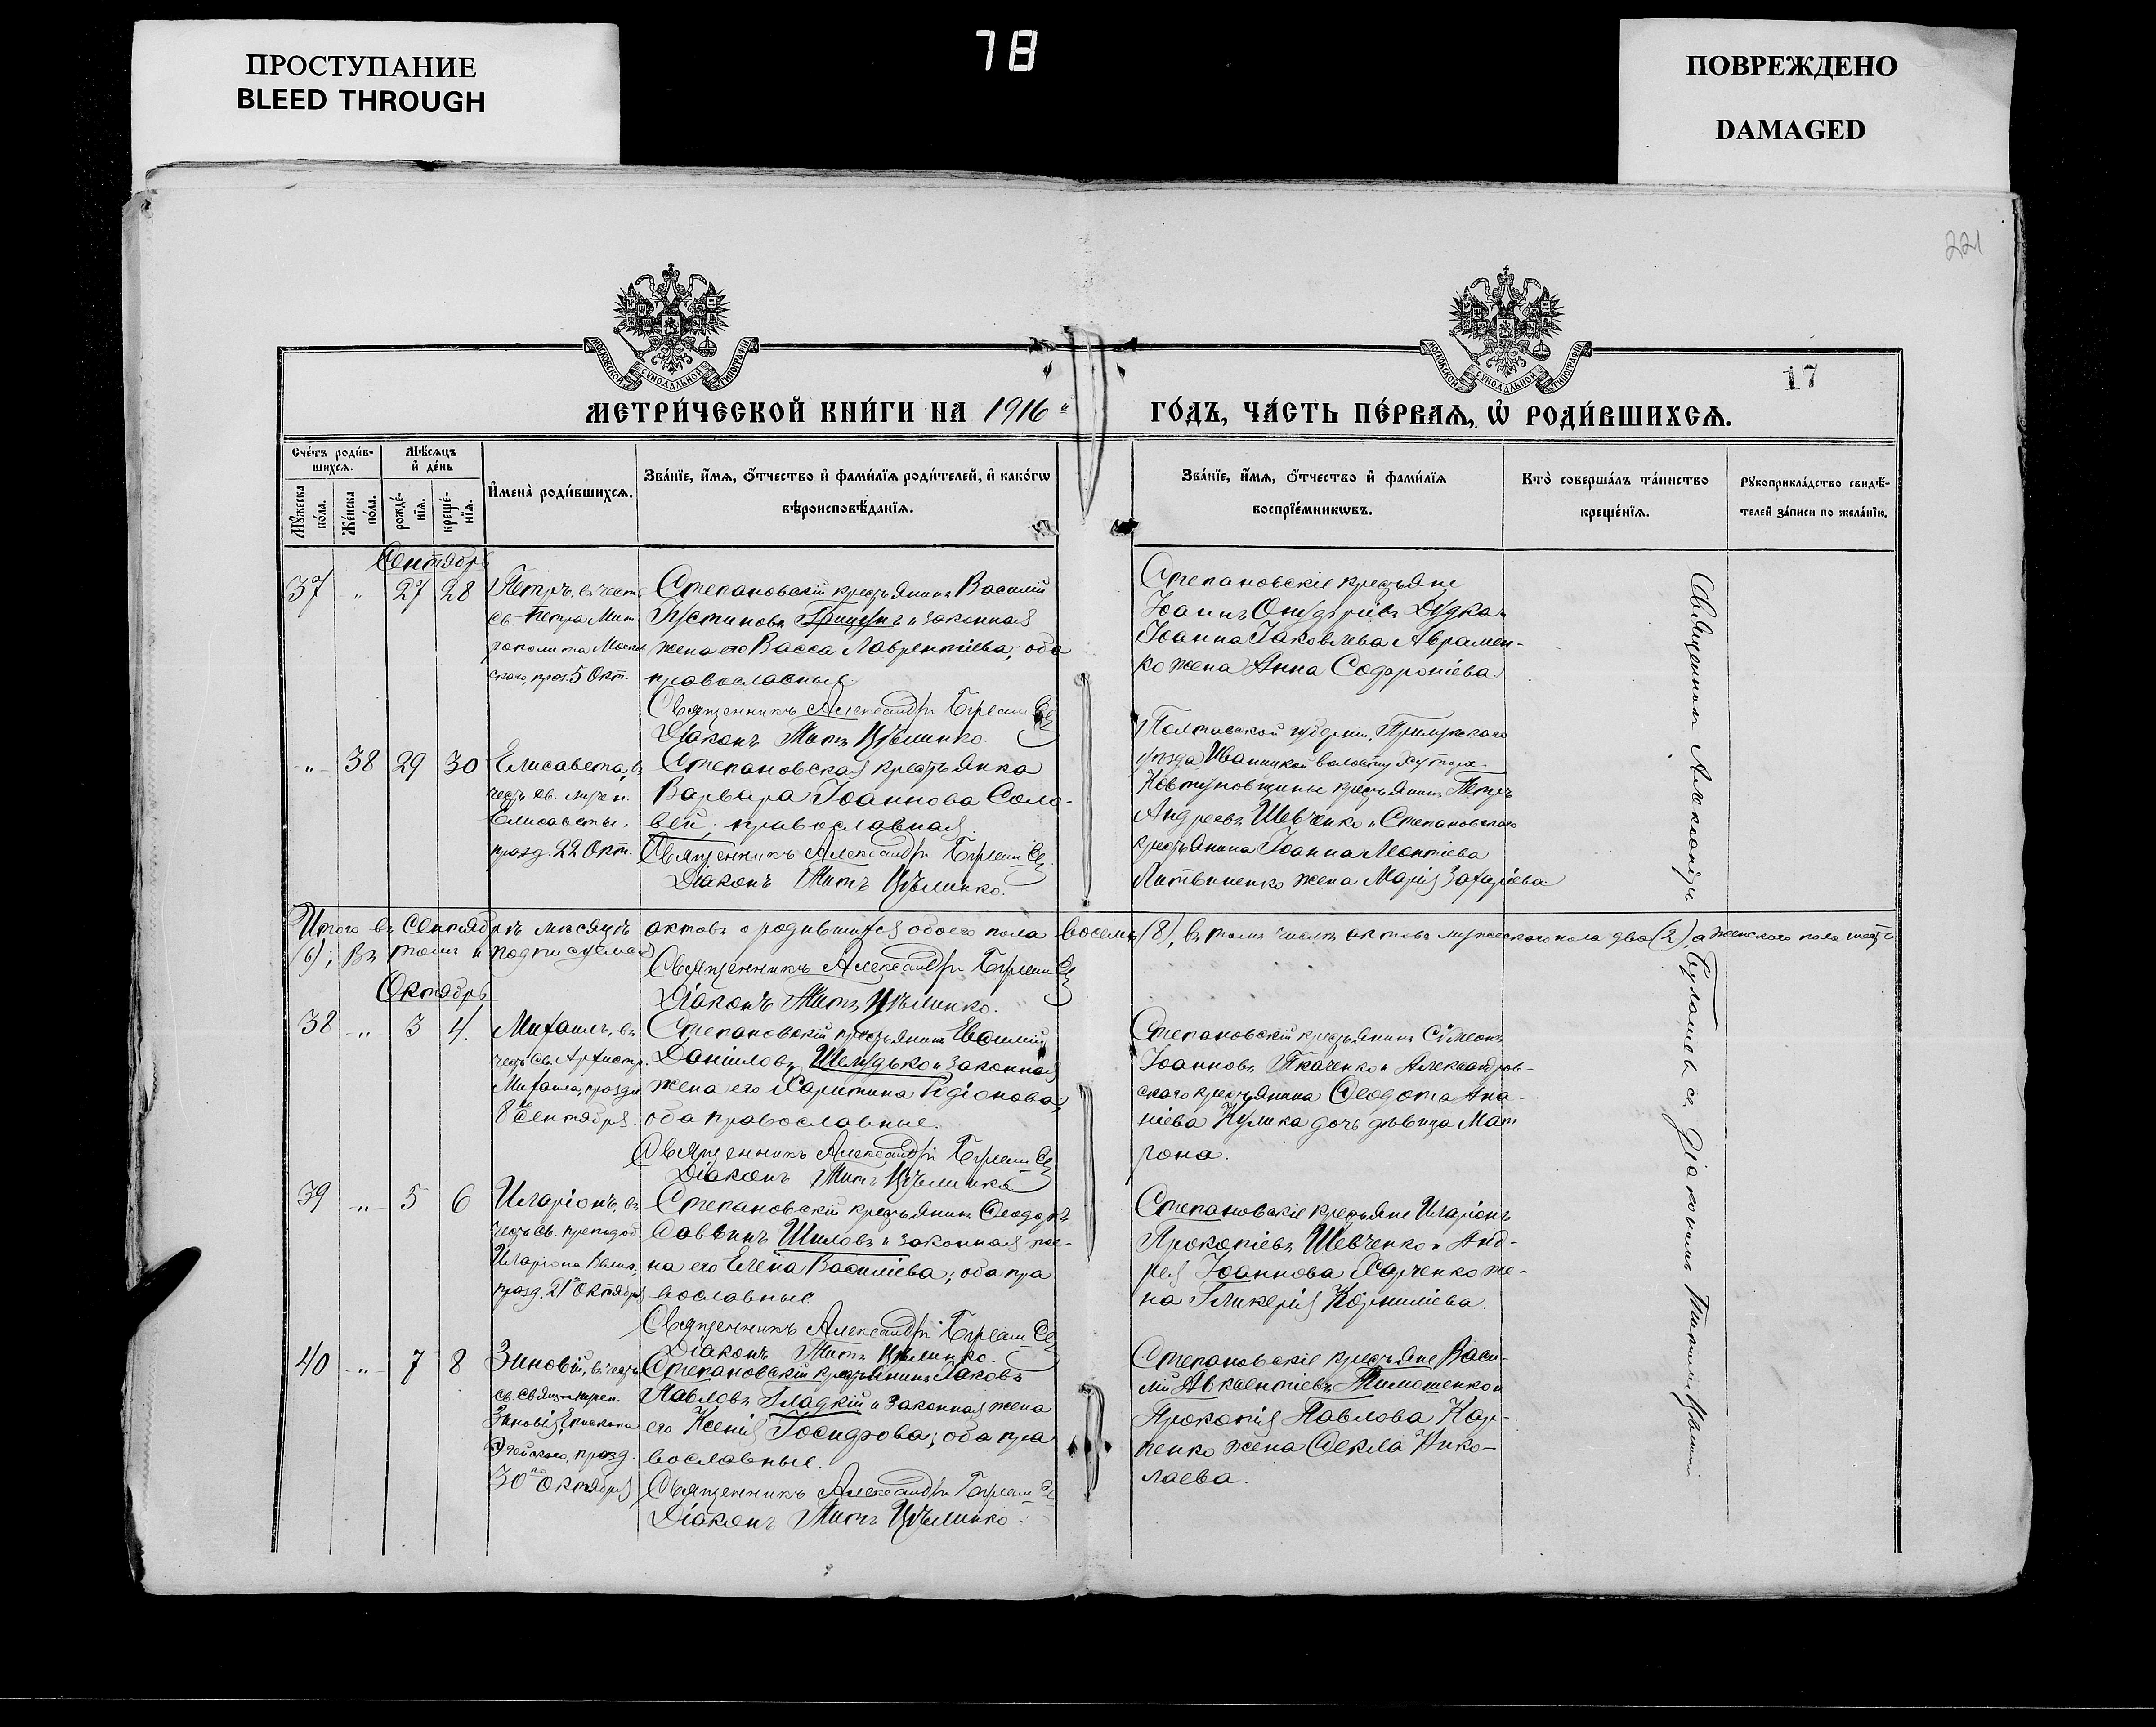 ПРОСТУПАНИЕ
BLEED THROUGH
78
ПОВРЕЖДЕНО
DAMAGED
221
МОСКОВСКОЙ СѴНОДАЛЬНОЙ ТИПОГРАФІИ
МОСКОВСКОЙ СѴНОДАЛЬНОЙ ТИПОГРАФІИ
17
МЕТРИ́ЧЕСКОЙ КНИ́ГИ НА 1916 ГО́ДЪ, ЧА́СТЬ ПЕ́РВАѦ, Ѡ҆ РОДИ́ВШИХСѦ.
Сче́тъ роди́в-
шихсѧ.
Мѣ́сѧцъ
и҆ де́нь
Мꙋ́жеска
по́ла.
Же́нска
по́ла.
рожде́-
нїѧ.
креще́-
нїѧ.
И҆мена̀ роди́вшихсѧ.
Зва́нїе, и҆́мѧ, ѻ҆́тчество и҆ фами́лїѧ роди́телей, и҆ како́гѡ
вѣроисповѣ́данїѧ.
Зва́нїе, и҆́мѧ, ѻ҆́тчество и҆ фами́лїѧ
воспрїе́мникѡвъ.
Кто̀ соверша́лъ та́инство
креще́нїѧ.
Рꙋкоприкла́дство свидѣ́-
телей за́писи по жела́нїю.
Сентябрь
37 " 27 28
Петръ, въ честь
св. Петра Мит
рополита Москов
скаго, праз. 5 Окт.
Степановскій крестьянинъ Василій
Іустиновъ Грицунъ и законная
жена его Васса Лаврентіева; оба
православные
Священникъ Александръ
Діаконъ Титъ Цѣлинко.
Степановскіе крестьяне
Іоаннъ Онуфріевъ Дудка и
Іоанна Іаковлева Авramен-
ко жена Анна Софроніева.
" 38 29 30
Елисавета, въ
честь св. мучен.
Елисаветы,
празд. 22 Окт.
Степановская крестьянка
Варвара Іоаннова Соло-
вей, православная.
Священникъ Александръ
Діаконъ Титъ Цѣлинко.
Полтавской губерніи, Прилукскаго
уѣзда, Иваницкой волости, хутора
Ковтуновщины крестьянинъ Петръ
Андреевъ Шевченко и Степановскаго
крестьянина Іоанна Леонтіева
Литвиненко жена Марія Захаріева
Итого въ Сентябрѣ мѣсяцѣ актовъ о родившихся обоего пола восемь (8), въ томъ числѣ актовъ мужескаго пола два (2), а женскаго пола шесть
(6); въ томъ и подписуемся
Священникъ Александръ
Діаконъ Титъ Цѣлинко.
Октябрь
38 " 3 4
Михаилъ, въ
честь св. Архистр.
Михаила, праздн
8го Сентября.
Степановскій крестьянинъ Евѳимій
Даніиловъ Шемудько и законная
жена его Харитина Родіонова,
оба православные.
Священникъ Александръ
Діаконъ Титъ Цѣлинко
Степановскій крестьянинъ Сѵмеонъ
Іоанновъ Ткаченко и Александров-
скаго крестьянина Ѳеодота Ана-
ніева Кулика дочь дѣвица Мат
рона.
39 " 5 6
Иларіонъ, въ
честь св. преподоб.
Иларіона Велик.
празд. 21го Октября
Степановскій крестьянинъ Ѳеодоръ
Саввинъ Шиловъ и законная же-
на его Елена Василіева; оба пра
вославные.
Священникъ Александръ
Діаконъ Титъ Цѣлинко.
Степановскіе крестьяне Иларіонъ
Прокопіевъ Шевченко и Анд-
рея Іоаннова Харченко же-
на Гликерія Корниліева.
40 " 7 8
Зиновій, въ честь
св. священномучен.
Зиновія, Епископа
Эгейскаго, празд.
30го Октября
Степановскій крестьянинъ Іаковъ
Павловъ Гладкій и законная жена
его Ксенія Іосифова; оба пра
вославные.
Священникъ Александръ
Діаконъ Титъ Цѣлинко.
Степановскіе крестьяне Васи-
лій Авксентіевъ Тимошенко и
Прокопія Павлова Кар-
пенко жена Ѳекла Нико-
лаева.
Священникъ Александръ
съ діакономъ Титомъ Цѣлинко